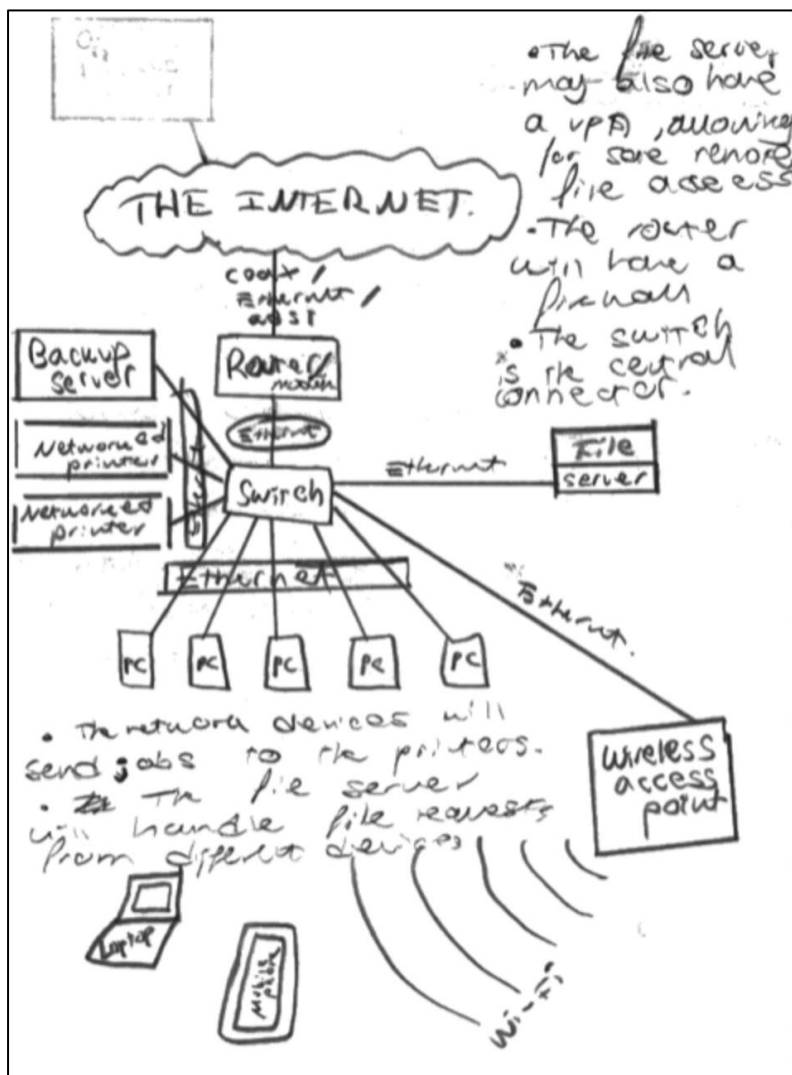 • The file server
may also have
a VPN, allowing
for safe remote
file access
• The router
will have a
firewall
• The switch
is the central
connector.
THE INTERNET.
coax/
Ethernet/
ADSL
Backup
server
Router/
modem
Ethernet
Networked
printer
Networked
printer
Ethernet
Switch
Ethernet
File
server
Ethernet
Ethernet.
PC PC PC PC PC
• The network devices will
send jobs to the printers.
• The file server
will handle file requests
from different devices
Wireless
access
point
Laptop
Mobile
phone
Wi-Fi